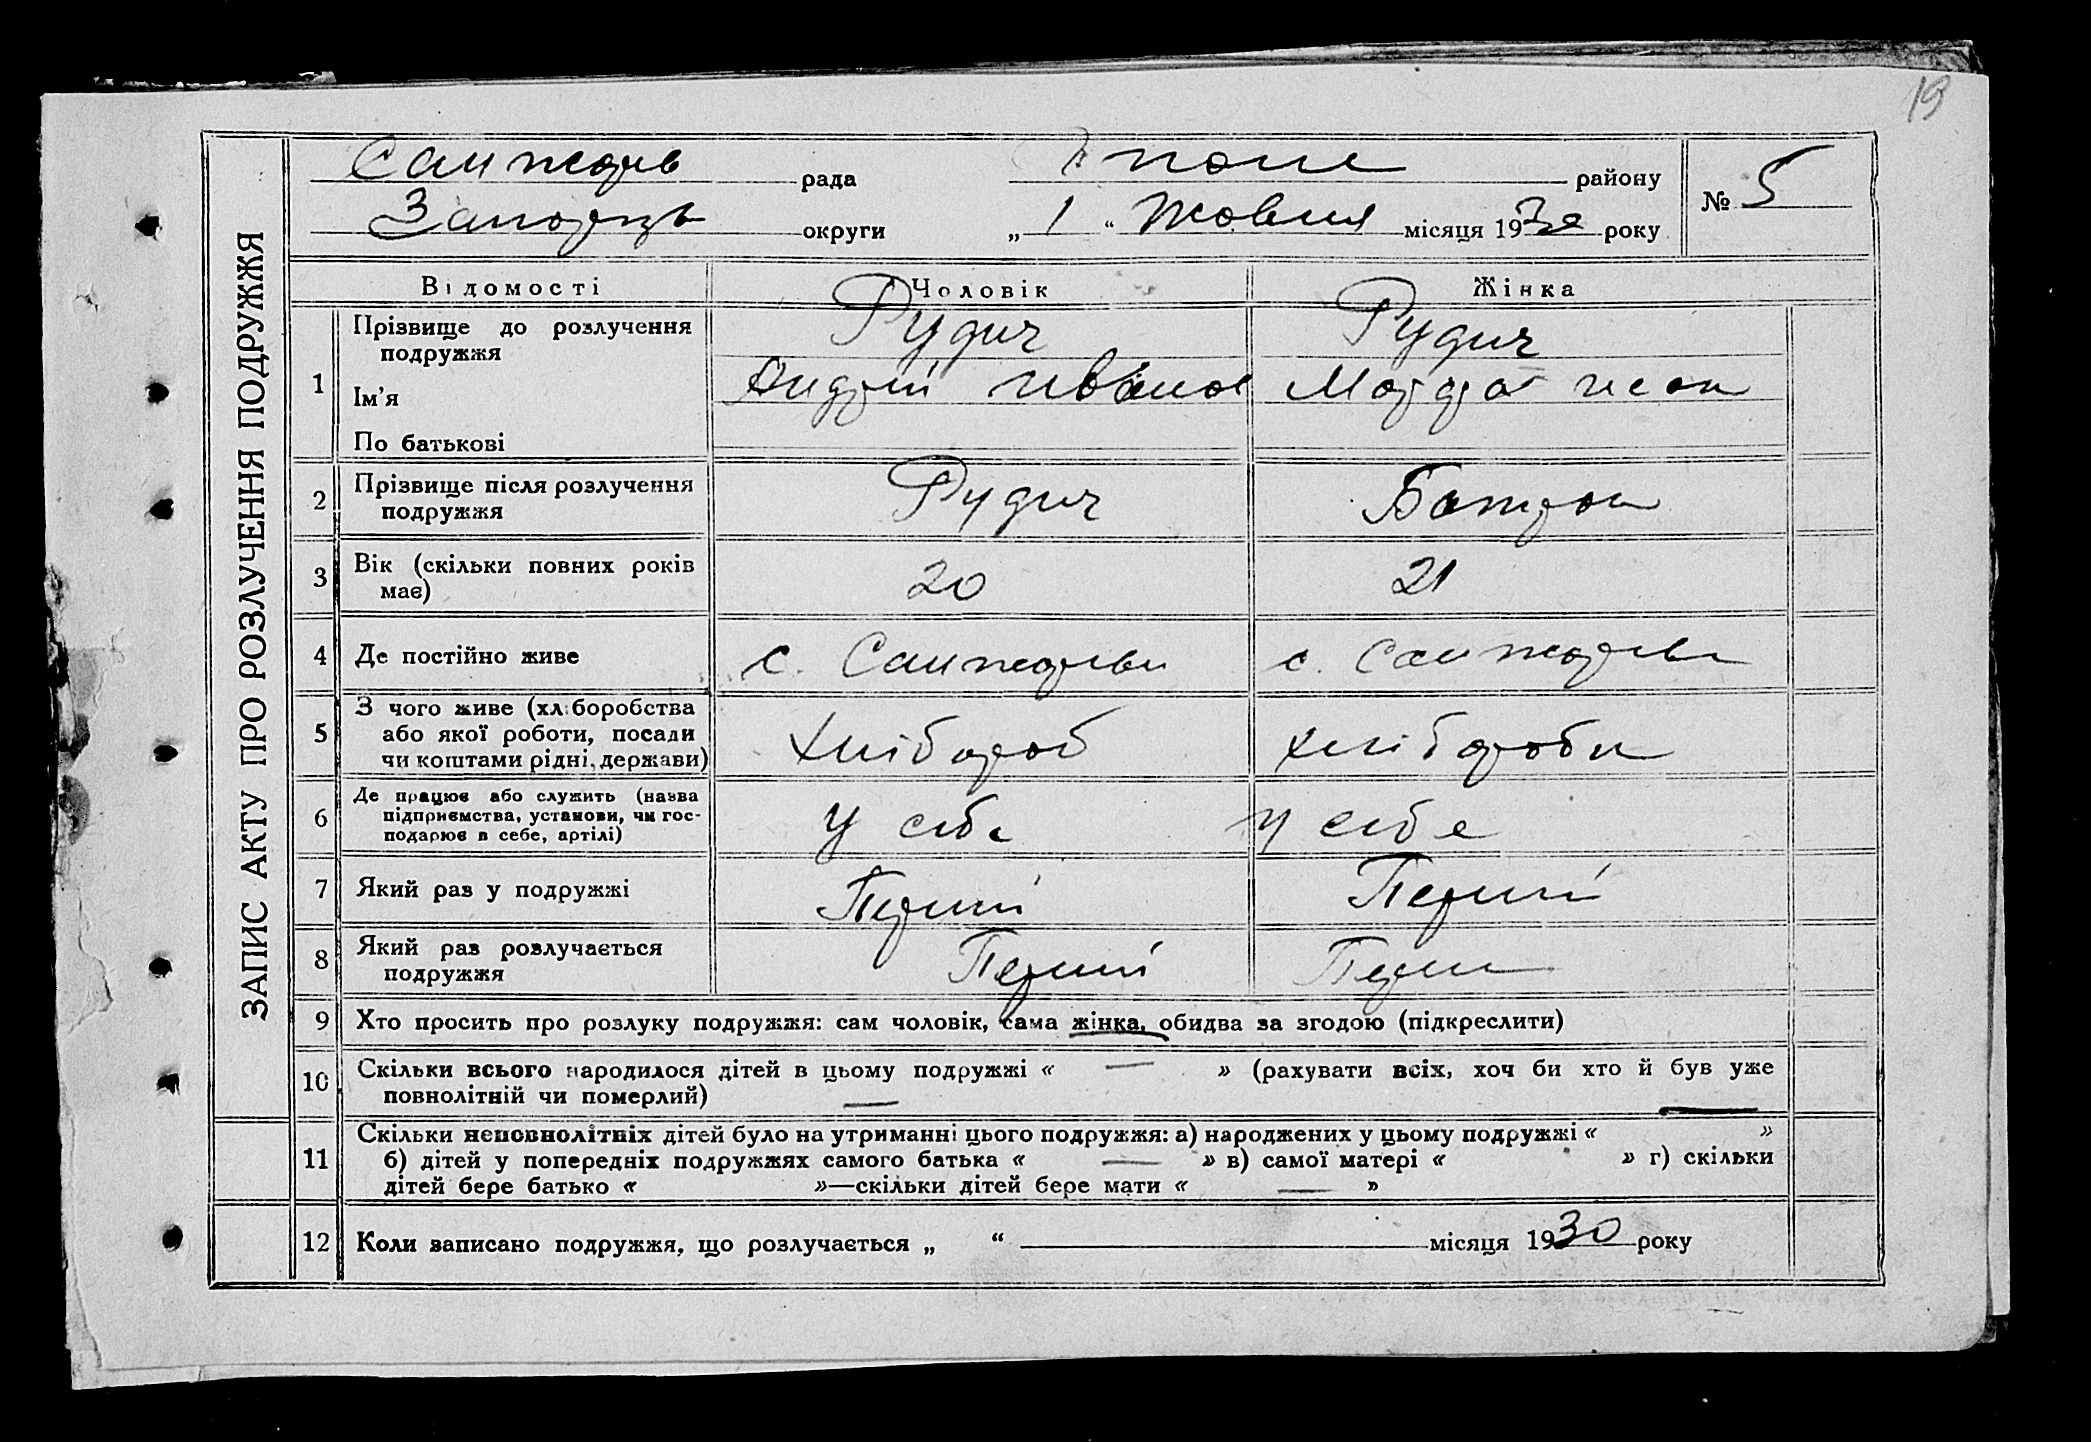 19
ЗАПИС АКТУ ПРО РОЗЛУЧЕННЯ ПОДРУЖЖЯ
рада району № 5
округи „ 1 “ Жовтня місяця 1930 року
Відомості Чоловік Жінка
1 Прізвище до розлучення Рудич Рудич
подружжя
Ім’я Андрій
По батькові
2 Прізвище після розлучення Рудич
подружжя
3 Вік (скільки повних років 20 21
має)
4 Де постійно живе с. с.
5 З чого живе (хліборобства
або якої роботи, посади Хлібороб хлібороби
чи коштами рідні, держави)
6 Де працює або служить (назва
підприємства, установи, чи гос- у себе у себе
подарює в себе, артілі)
7 Який раз у подружжі Перший Перший
8 Який раз розлучається Перший
подружжя
9 Хто просить про розлуку подружжя: сам чоловік, сама жінка, обидва за згодою (підкреслити)
10 Скільки всього народилося дітей в цьому подружжі « — » (рахувати всіх, хоч би хто й був уже
повнолітній чи померлий) —
11 Скільки неповнолітніх дітей було на утриманні цього подружжя: а) народжених у цьому подружжі « — »
б) дітей у попередніх подружжях самого батька « — » в) самої матері « » г) скільки
дітей бере батько « »—скільки дітей бере мати « — »
12 Коли записано подружжя, що розлучається „ “ місяця 1930 року